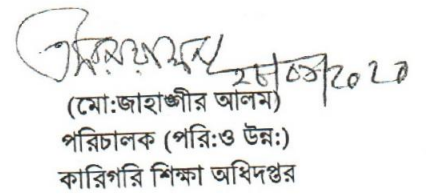 ২৮/০৯/২০২০
(মো:জাহাঙ্গীর আলম)
পরিচালক (পরি:ও উন্ন:)
কারিগরি শিক্ষা অধিদপ্তর